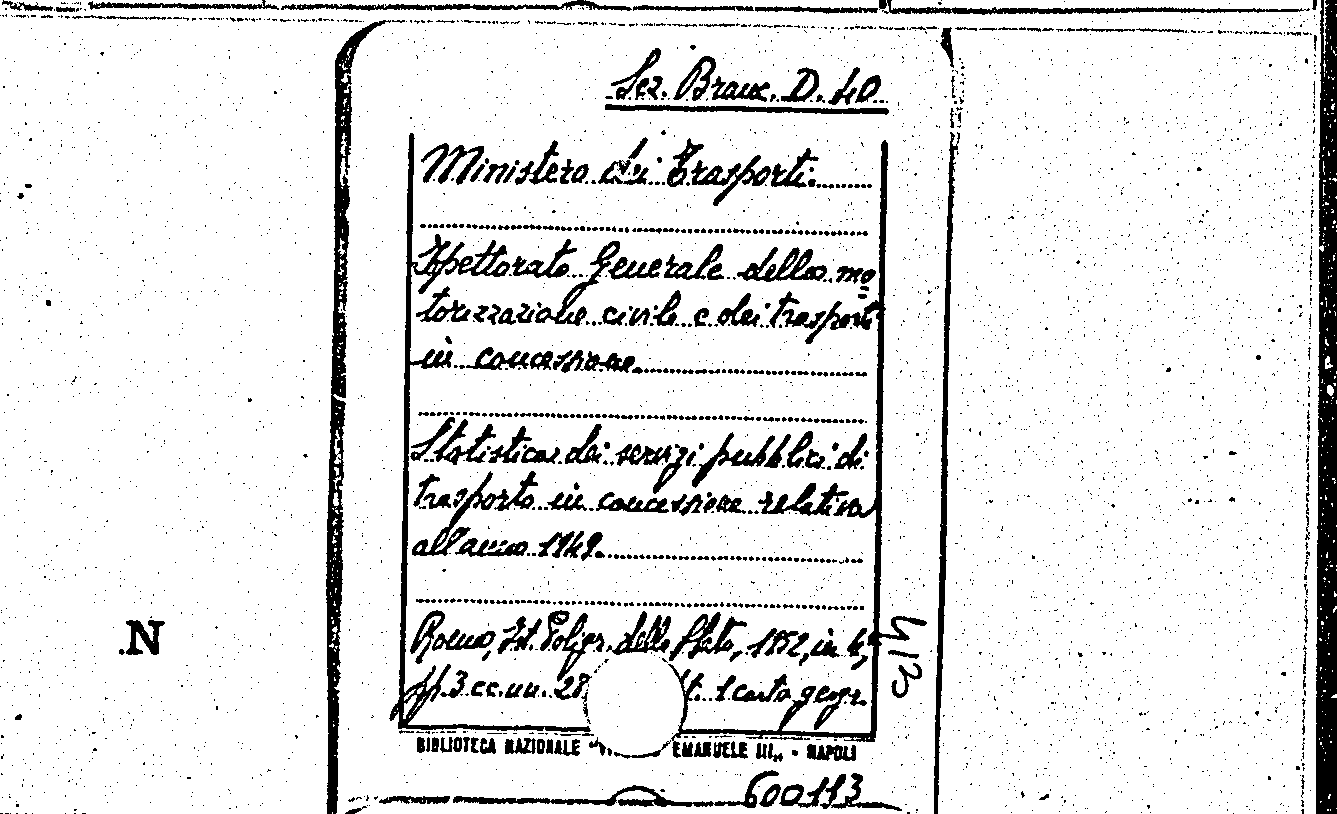 Sez. Branc. D. 40
Ministero dei Trasporti.
Ispettorato Generale della mo
torizzazione civile e dei trasporti
in concessione.
Statistica dei servizi pubblici di
trasporto in concessione relativa
all'anno 1949.
Roma, Ist. Poligr. dello Stato, 1952, in 4°,
pp. 3 cc. nn. 28 1 carta geogr.
BIBLIOTECA NAZIONALE " EMANUELE III„ - NAPOLI
600113
N